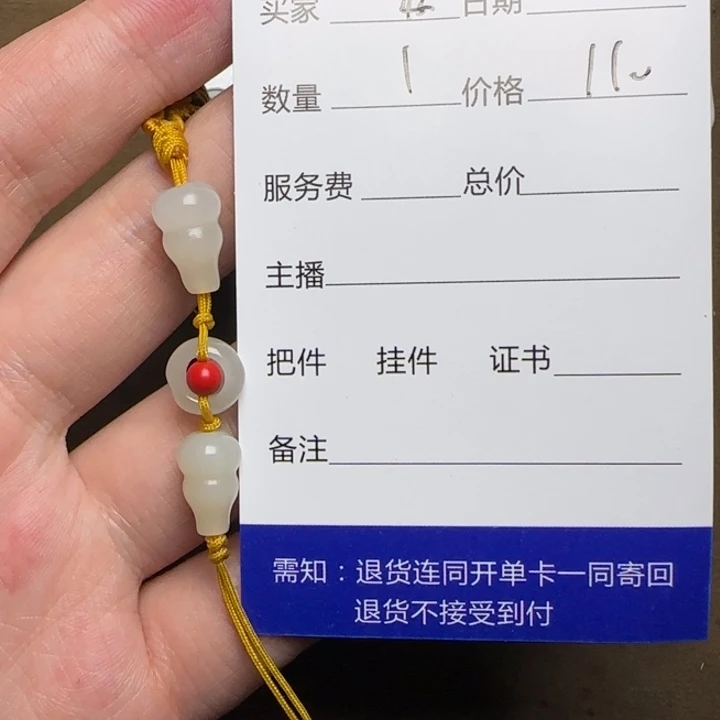 买家 日期
数量 1 价格 110
服务费 总价
主播
把件 挂件 证书
备注
需知：退货连同开单卡一同寄回
退货不接受到付